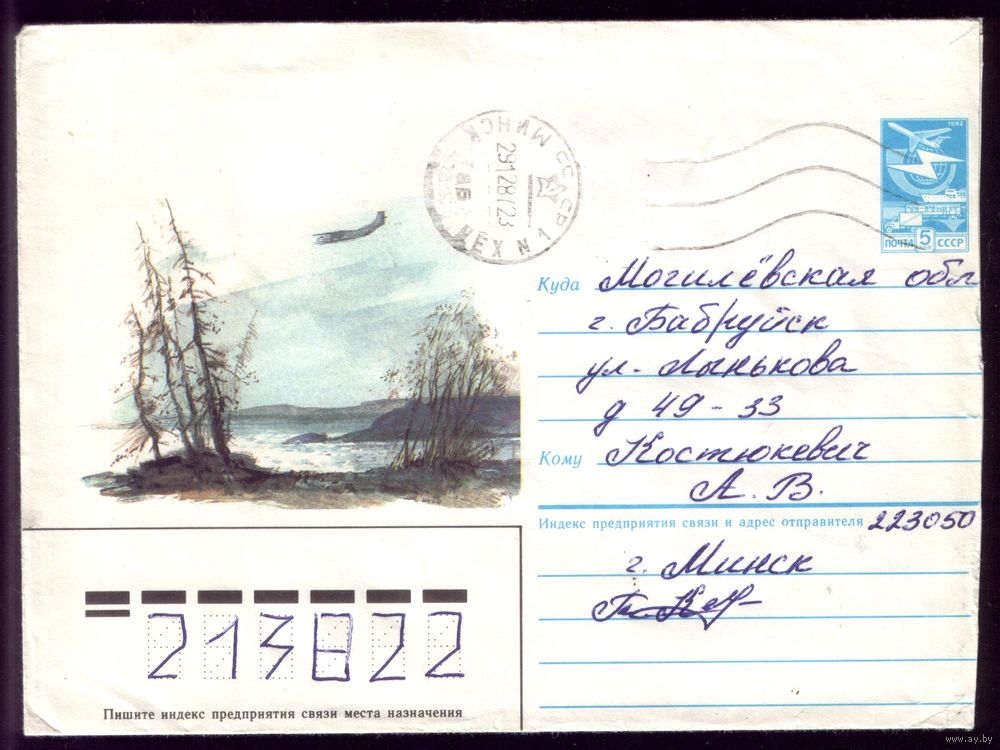 МИНСК
СССР
МЕХ N 1
29128723
1982
ПОЧТА 5 КОП СССР
Куда Могилёвская обл
г. Бабруйск
ул. Лынькова
д 49-33
Кому Костюкевич
А. В.
Индекс предприятия связи и адрес отправителя 223050
г. Минск
213822
Пишите индекс предприятия связи места назначения
www.ay.by